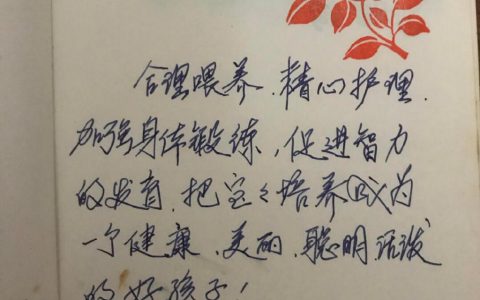 合理喂养、精心护理、
加强身体锻练，促进智力
的发育、把宝々培养成为
一个健康、美丽、聪明、活泼
的好孩子！